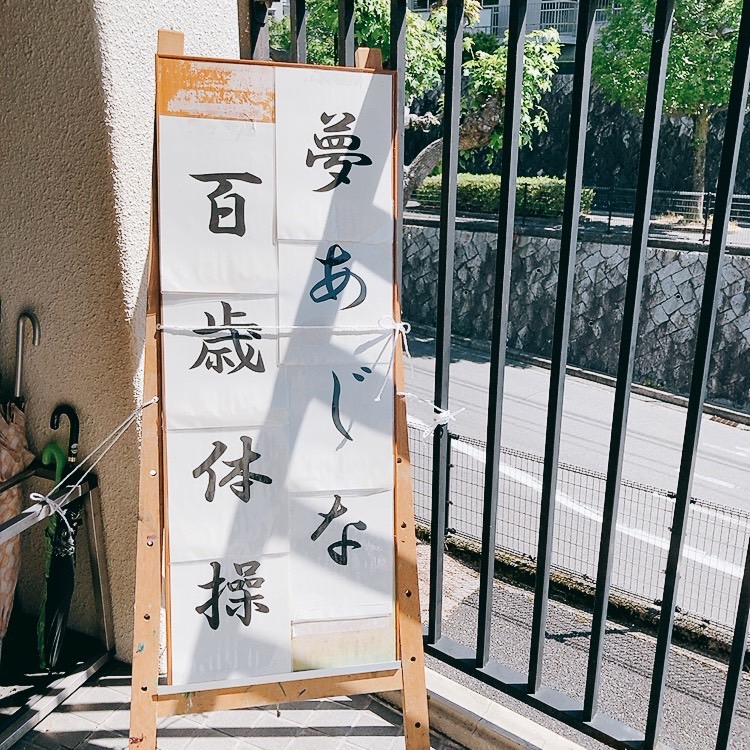 夢あじな
百歳体操